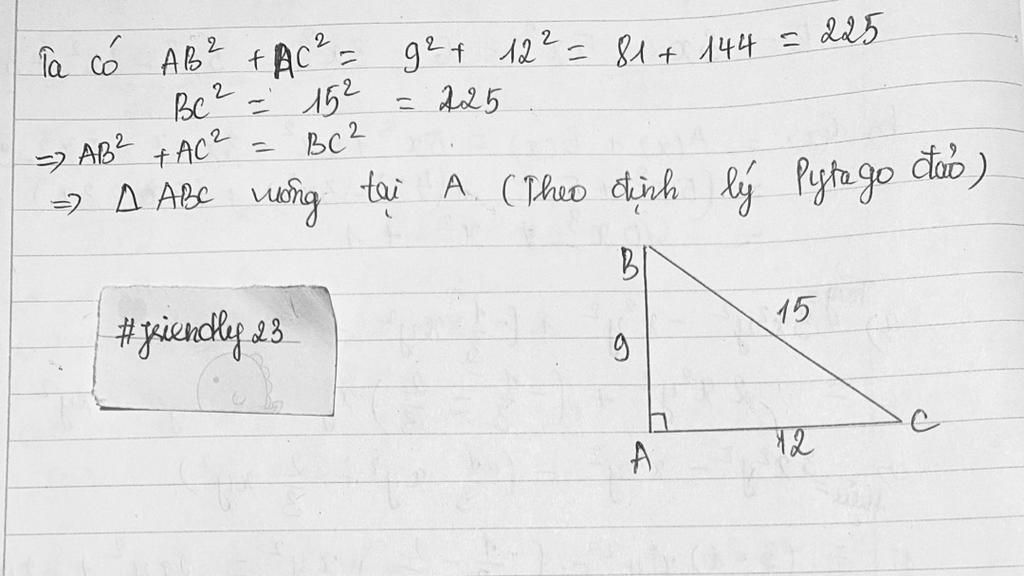 Ta có AB² + AC² = 9² + 12² = 81 + 144 = 225
BC² = 15² = 225.
⇒ AB² + AC² = BC²
⇒ Δ ABC vuông tại A. (Theo định lý Pytago đảo)
#friendly23
B
15
9
A
12
C